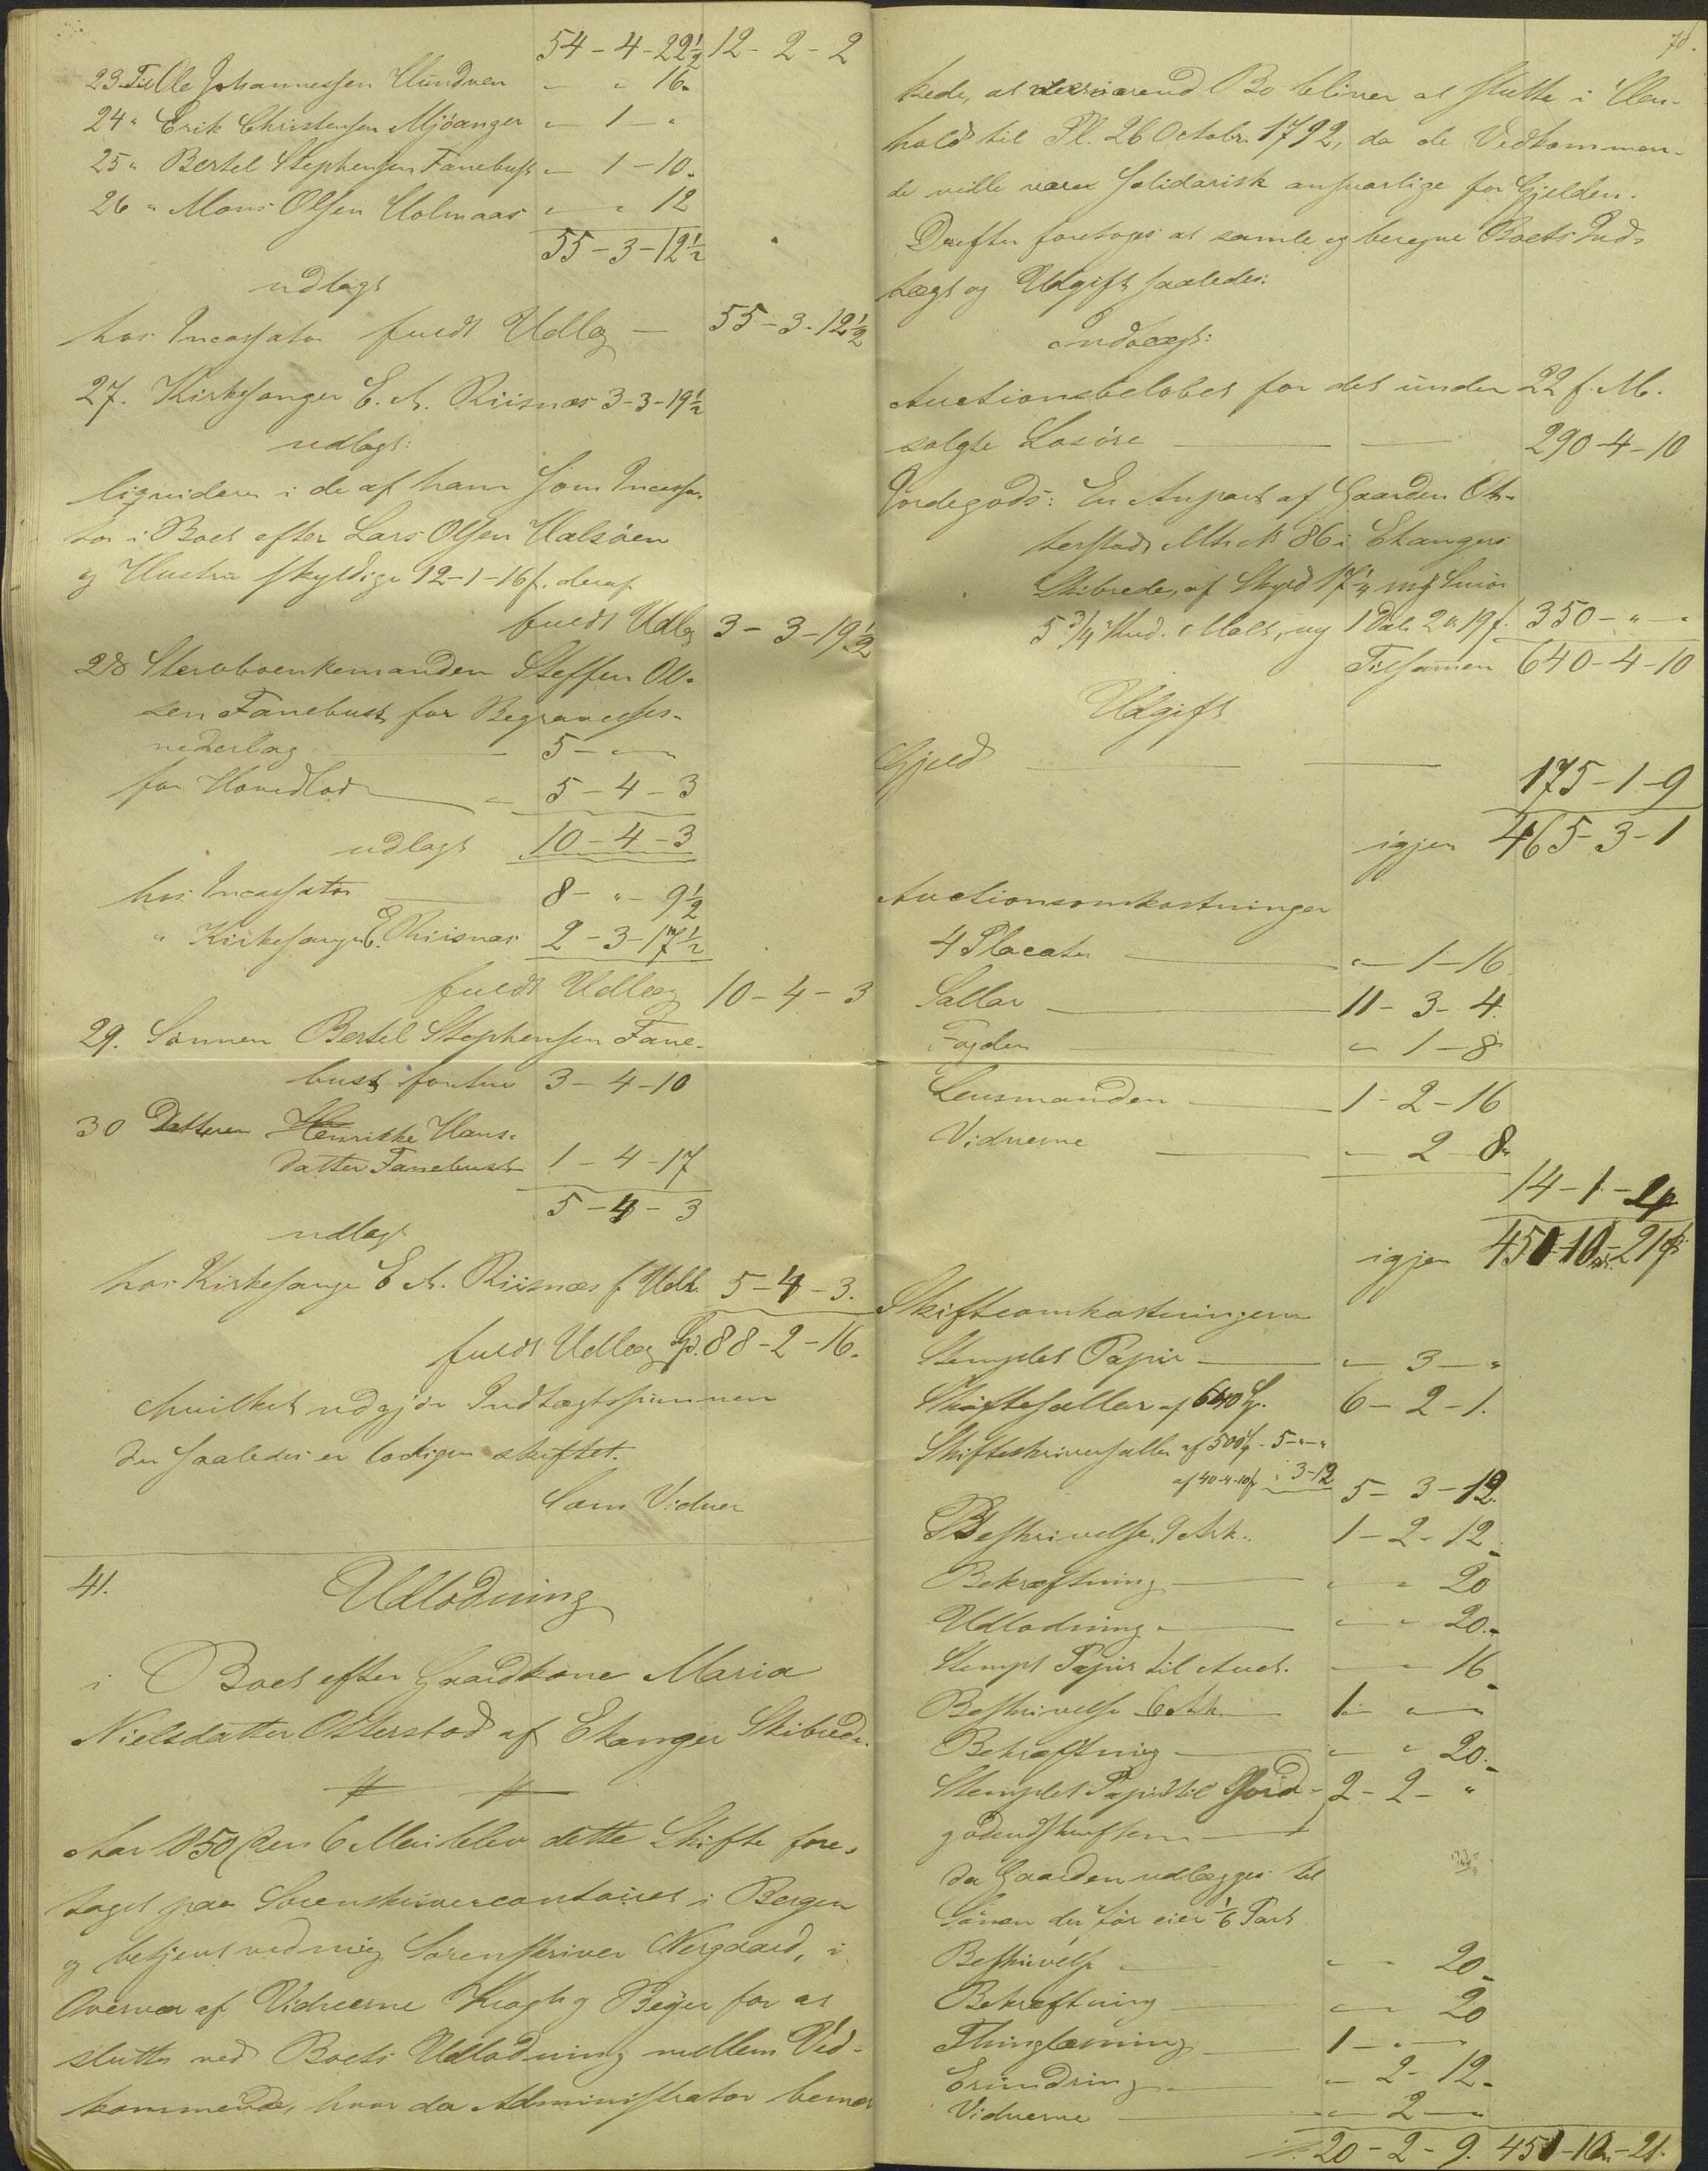 54-4-22½ 12-2-2
23 Til Ole Johannessen Hundven - " 16.
24 " Erik Christensen Mjöanger " 1 - "
25 " Bertel Stephensen Fanebust " 1-10.
26 " Mons Olsen Holmaas " " 12
55-3-12½
udlagt
hos Incassator fuldt Udlæg - 55-3-12½
27. Kirkesanger E. A. Riisnæs 3-3-19½
udlagt:
liquideres i de af ham som Incassa-
tor i Boet efter Lars Olsen Halsöen
og Hustru skyldige 12-1-16 s. deraf
fuldt Udlæg 3-3-19½
28 Stervboenkemanden Steffen Ol-
sen Fanebust for Begravelses-
nederlag 5 - " - "
for Hovedlod " 5-4-3
udlagt 10-4-3
hos Incassator 8-"-9½
" Kirkesanger E. Riisnæs 2-3-17½
fuldt Udlæg 10-4-3
29. Sönnen Bertel Stephensen Fane-
bust 3-4-10
30 Datteren Henrikke Hans-
datter Fanebust 1-4-17
5-4-3
udlagt
hos Kirkesanger E A. Riisnæs f Udl. 5-4-3.
fuldt Udlæg Spd. 88-2-16.
hvilket udgjör Indtægtssummen
der saaledes er lovligen skiftet.
Som Vidner
41. Udlodning
i Boet efter Gaardkone Maria
Nielsdatter Otterstad af Echanger Skibrede.
Aar 1850 den 6 Mai blev dette Skifte fore-
taget paa Sorenskrivercontoiret i Bergen
og betjent ved mig Sorenskriver Nergaard, i
Overvær af Vidnerne Krogh og Beyer for at
sluttes ved Boets Udlodning mellem Ved-
kommende, hvor da Administrator bemær
78.
kede, at nærværend Bo bliver at slutte i Hen-
hold til Pl. 26 Octobr. 1792, da de Vedkommen-
de ville være solidarisk ansvarlige for Gjelden.
Derefter foretoges at samle og beregne Boets Ind-
tægt og Udgift saaledes:
Indtægt:
Auctionsbelöbet for det under 22 f. M.
solgte Lösöre 290-4-10
Jordegods: En Anpart af Gaarden Ot-
terstad M No 86 i Echangers
Skibrede, af Skyld 17¼ mk Smör
5¾ Hud. Malt, ny 1 Dal. 2 " 19 s. 350 - " - "
Tilsammen 640-4-10
Udgift
Gjeld 175-1-9
igjen 465-3-1
Auctionsomkostninger
4 Placater " 1-16
Sallar 11-3-4.
Fogden " 1-8
Lensmanden 1-2-16
Vidnerne " 2 8
14-1-4
igjen 451-1-21
Skifteomkostningerne
Stemplet Papir " 3 - "
Skiftesallar af 640 Sp. 6-2-1.
Skifteskriversallar af 500 Sp. 5-"-"
af 40-4-10 s " 3-12 5-3-12.
Beskrivelse, 9 Ark. 1-2-12
Bekræftning " " 20
Udlodning " " 20.
Stempt Papir til Auct. " " 16
Beskrivelse 6 Ark 1 " "
Bekræftning " " 20.
Stemplet Papir til Jord- 2-2-"
godsudskriften
da Gaarden udlægges til
Sönnen der för eier 1/6 Part
Beskrivelse " " 20
Bekræftning " " 20
Thinglæsning 1 - " "
Erindring " 2-12
Vidnerne " 2 - "
20-2-9. 451-1-21.